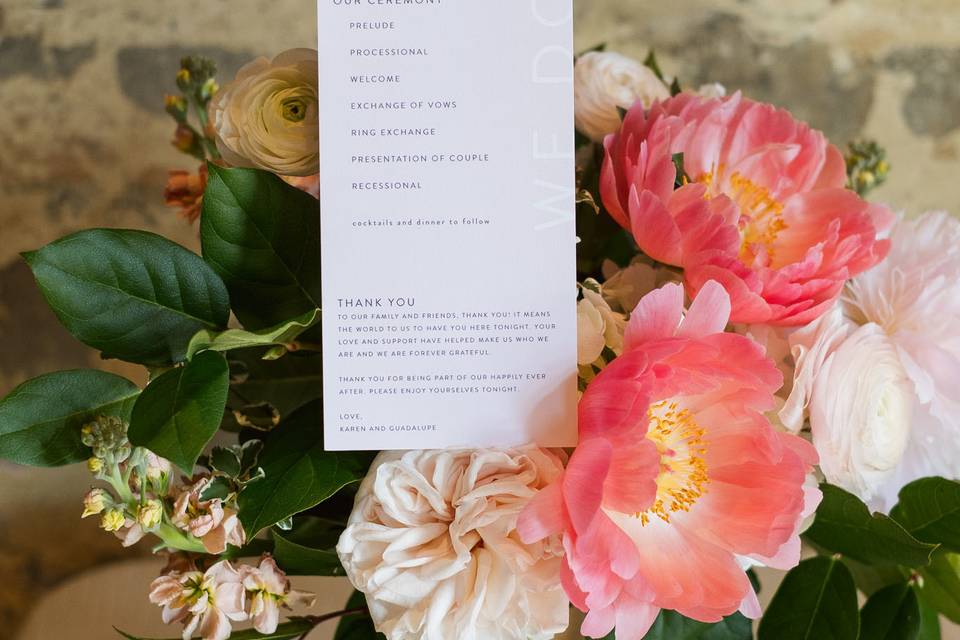 OUR CEREMONY
PRELUDE
PROCESSIONAL
WELCOME
EXCHANGE OF VOWS
RING EXCHANGE
PRESENTATION OF COUPLE
RECESSIONAL
cocktails and dinner to follow
WE DO
THANK YOU
TO OUR FAMILY AND FRIENDS, THANK YOU! IT MEANS
THE WORLD TO US TO HAVE YOU HERE TONIGHT. YOUR
LOVE AND SUPPORT HAVE HELPED MAKE US WHO WE
ARE AND WE ARE FOREVER GRATEFUL.
THANK YOU FOR BEING PART OF OUR HAPPILY EVER
AFTER. PLEASE ENJOY YOURSELVES TONIGHT.
LOVE,
KAREN AND GUADALUPE